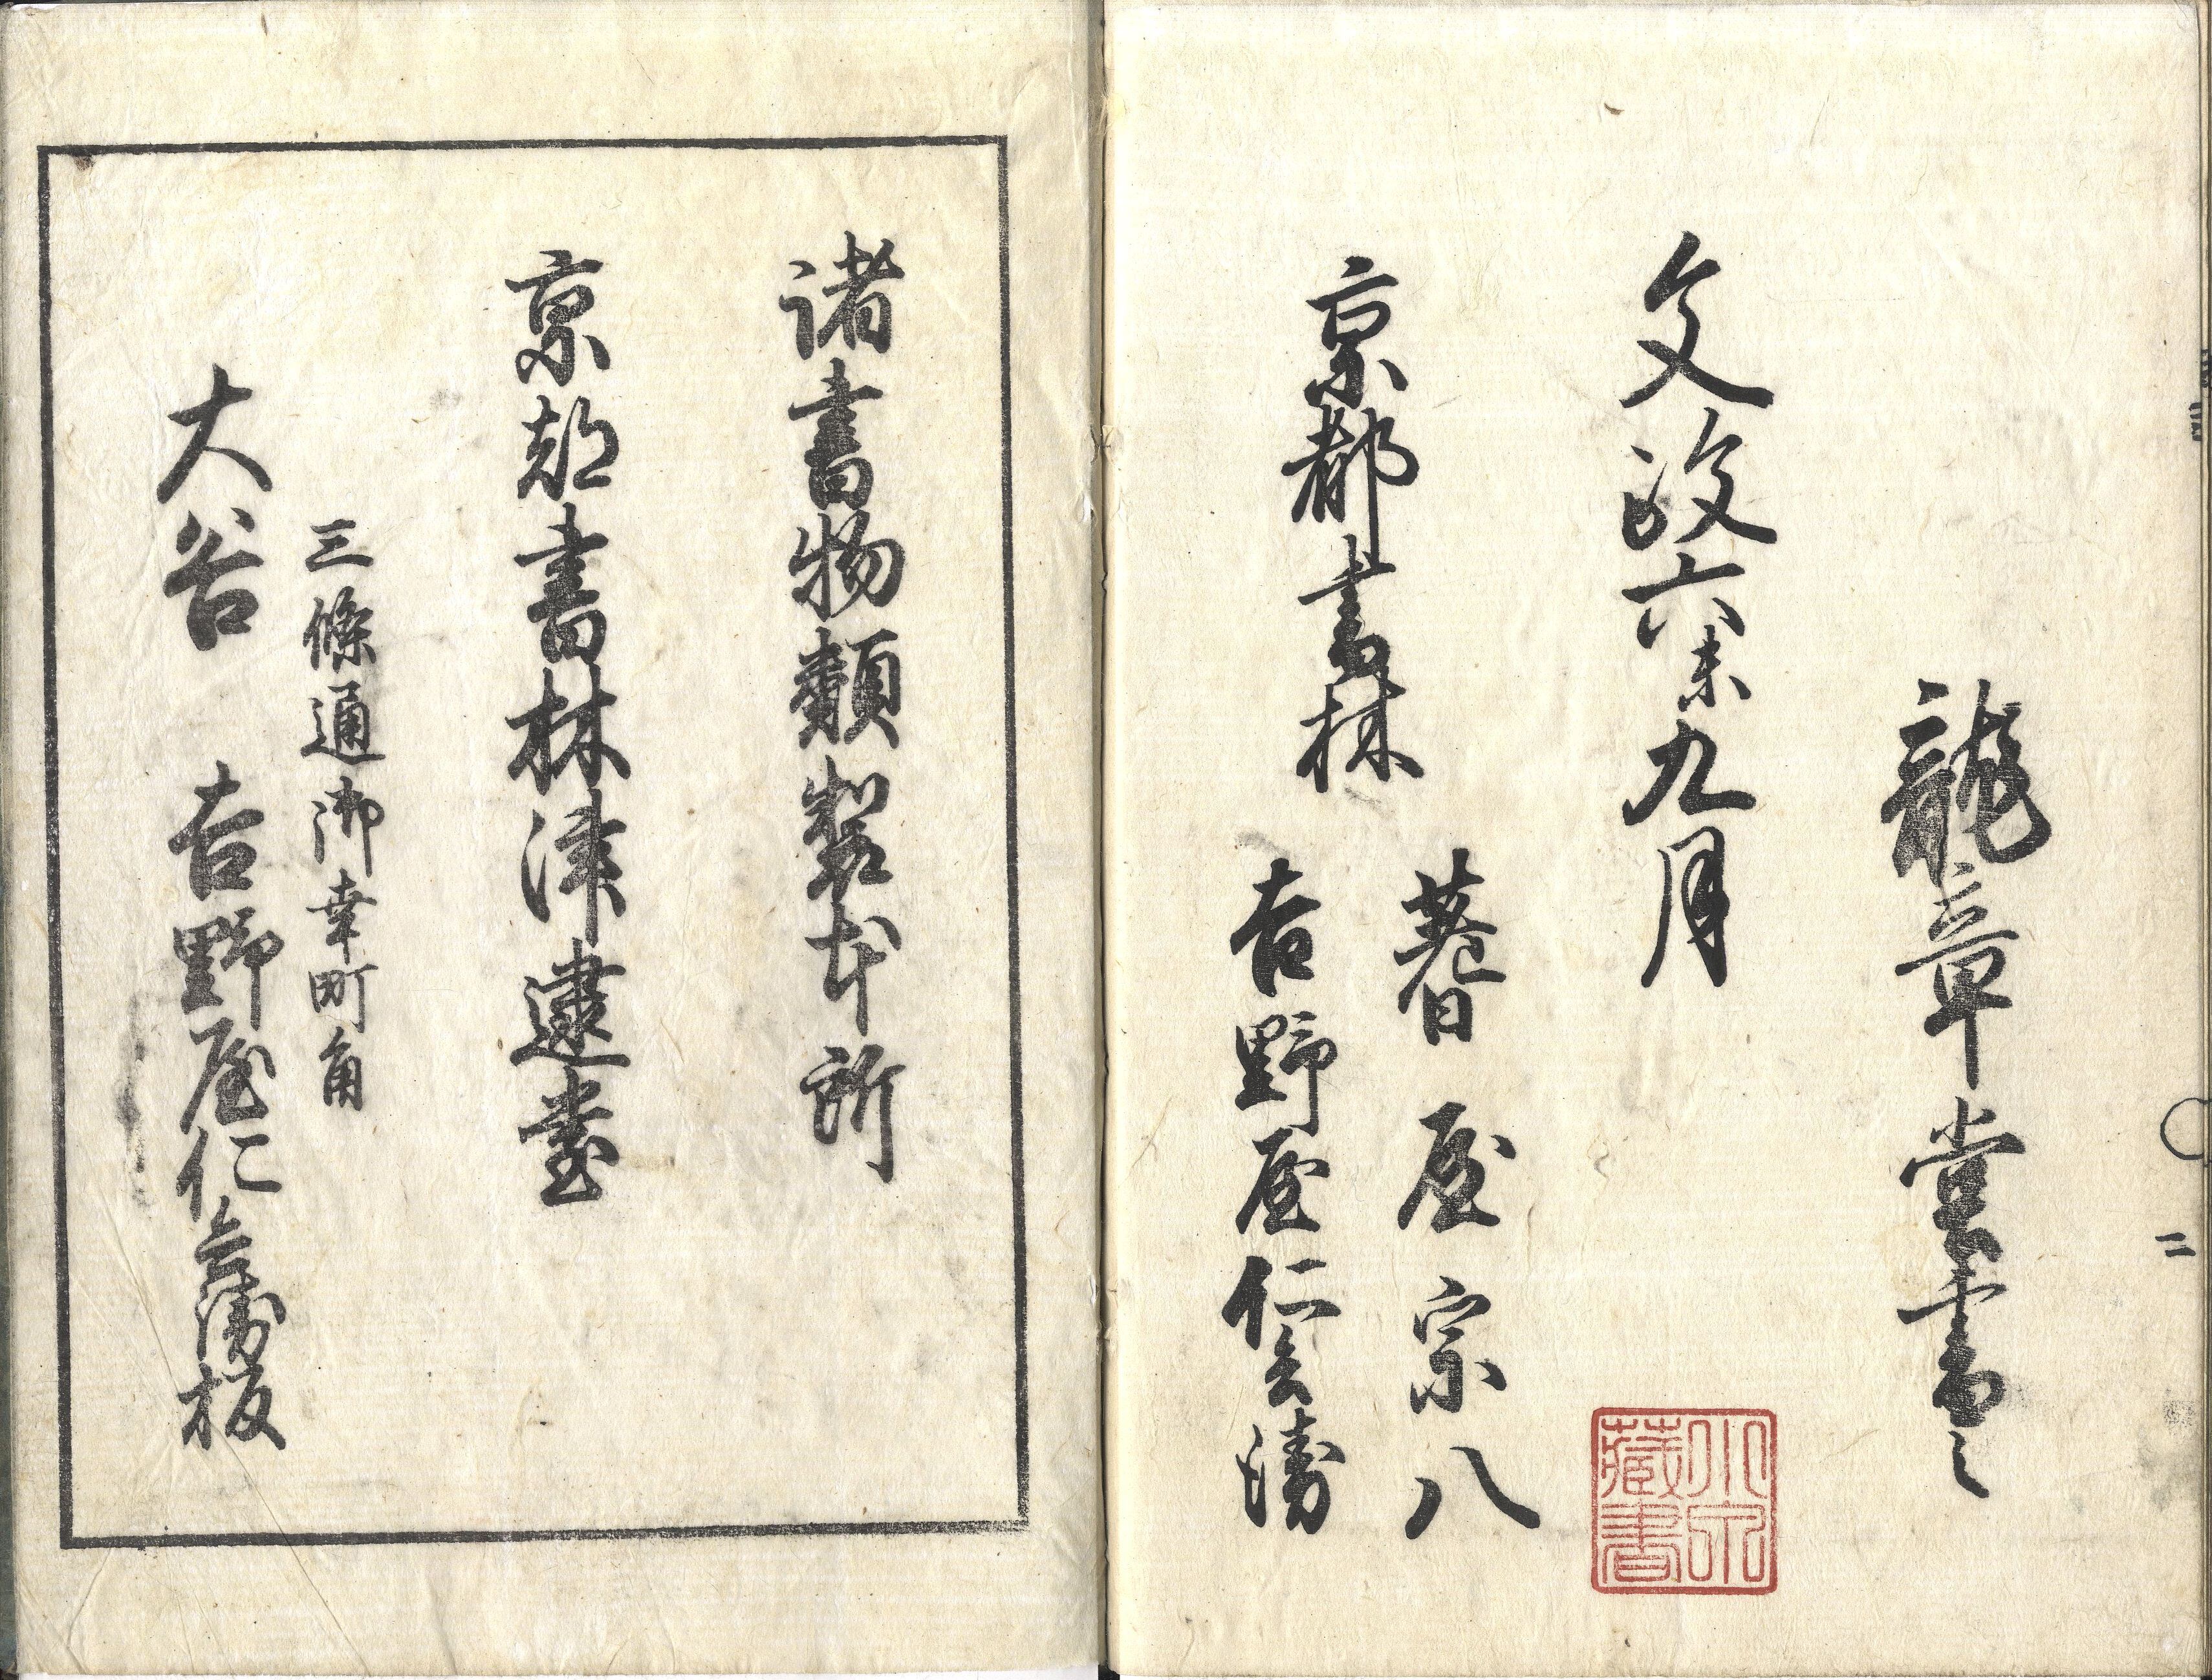 龍章堂書之
文政六未九月
京都書林
蓍屋宗八
吉野屋仁兵衛
藏書
諸書物類製本所
京都書林津逮堂
三條通御幸町角
大谷 吉野屋仁兵衛板